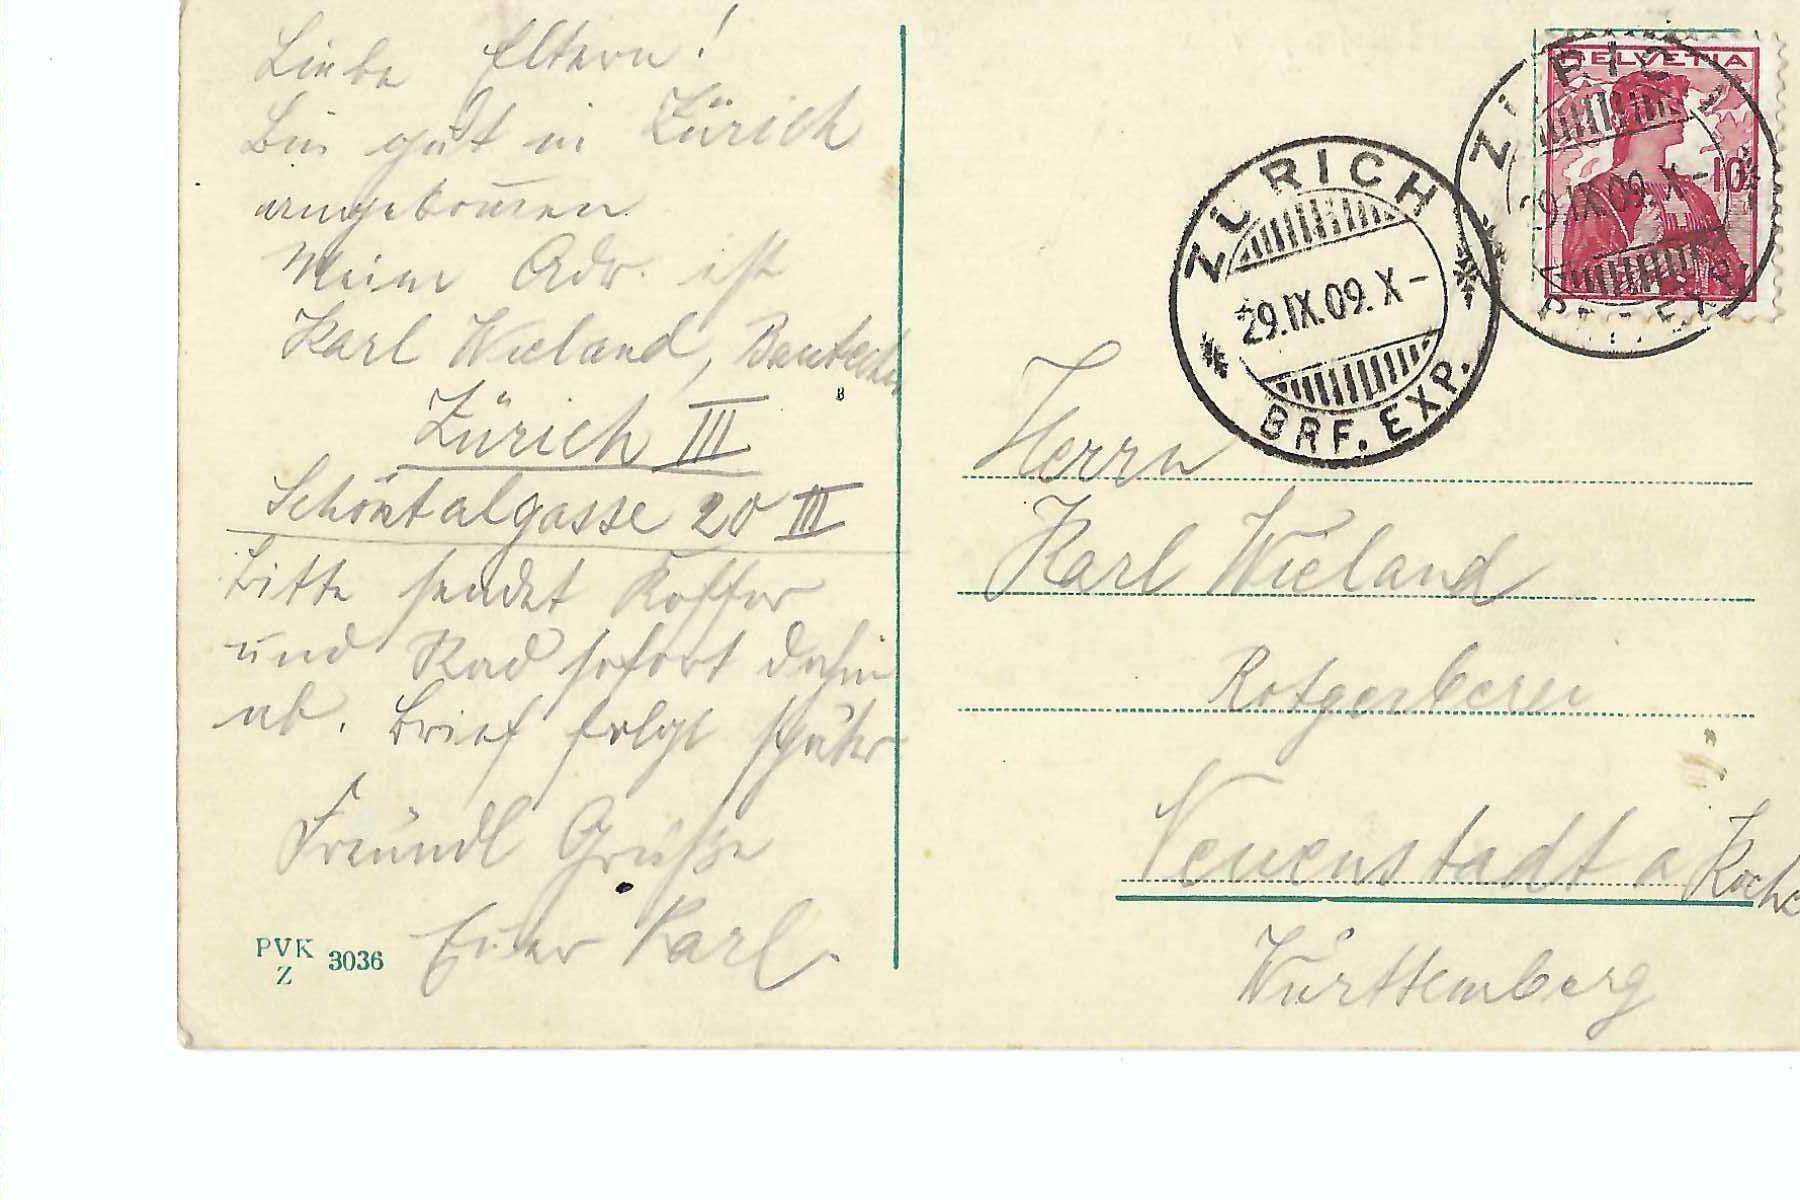 Liebe Eltern!
Bin gut in Zürich
angekom̄en.
Meine Adr. ist
Karl Wieland, Bautechn
Zürich III
Schöntalgasse 20 III
Bitte sendet Koffer
und Rad sofort dahin
ab. Brief folgt später
Freundl Grüße
Euer Karl.
PVK
Z 3036
HELVETIA
10
ZÜRICH
29.IX.09.X-
BRF. EXP.
ZÜRICH
29.IX.09.X-
BRF. EXP.
Herrn
Karl Wieland
Rotgerberei
Neuenstadt a Koche
Württemberg